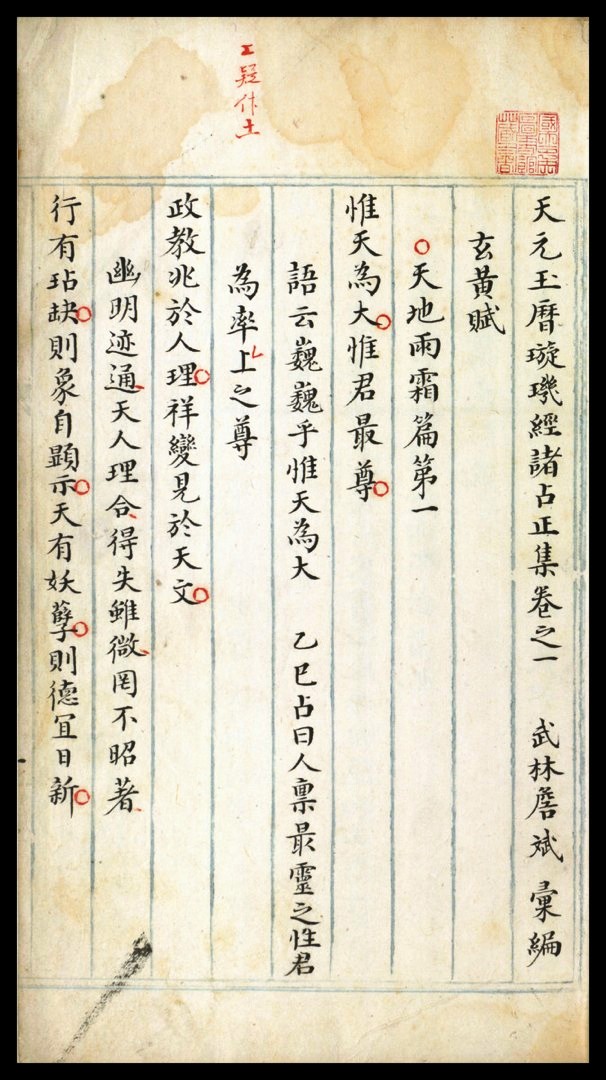 天元玉曆璇璣經諸占正集卷之一　武林詹斌　彙編
玄黃賦
天地雨霜篇第一
惟天為大惟君最尊
語云巍巍乎惟天為大　乙巳占曰人禀最靈之性君
為率上之尊
政教兆於人理祥變見於天文
幽明迹通天人理合得失雖微罔不昭著
行有玷缺則象自顯示天有妖孽則德宜日新
工疑作土